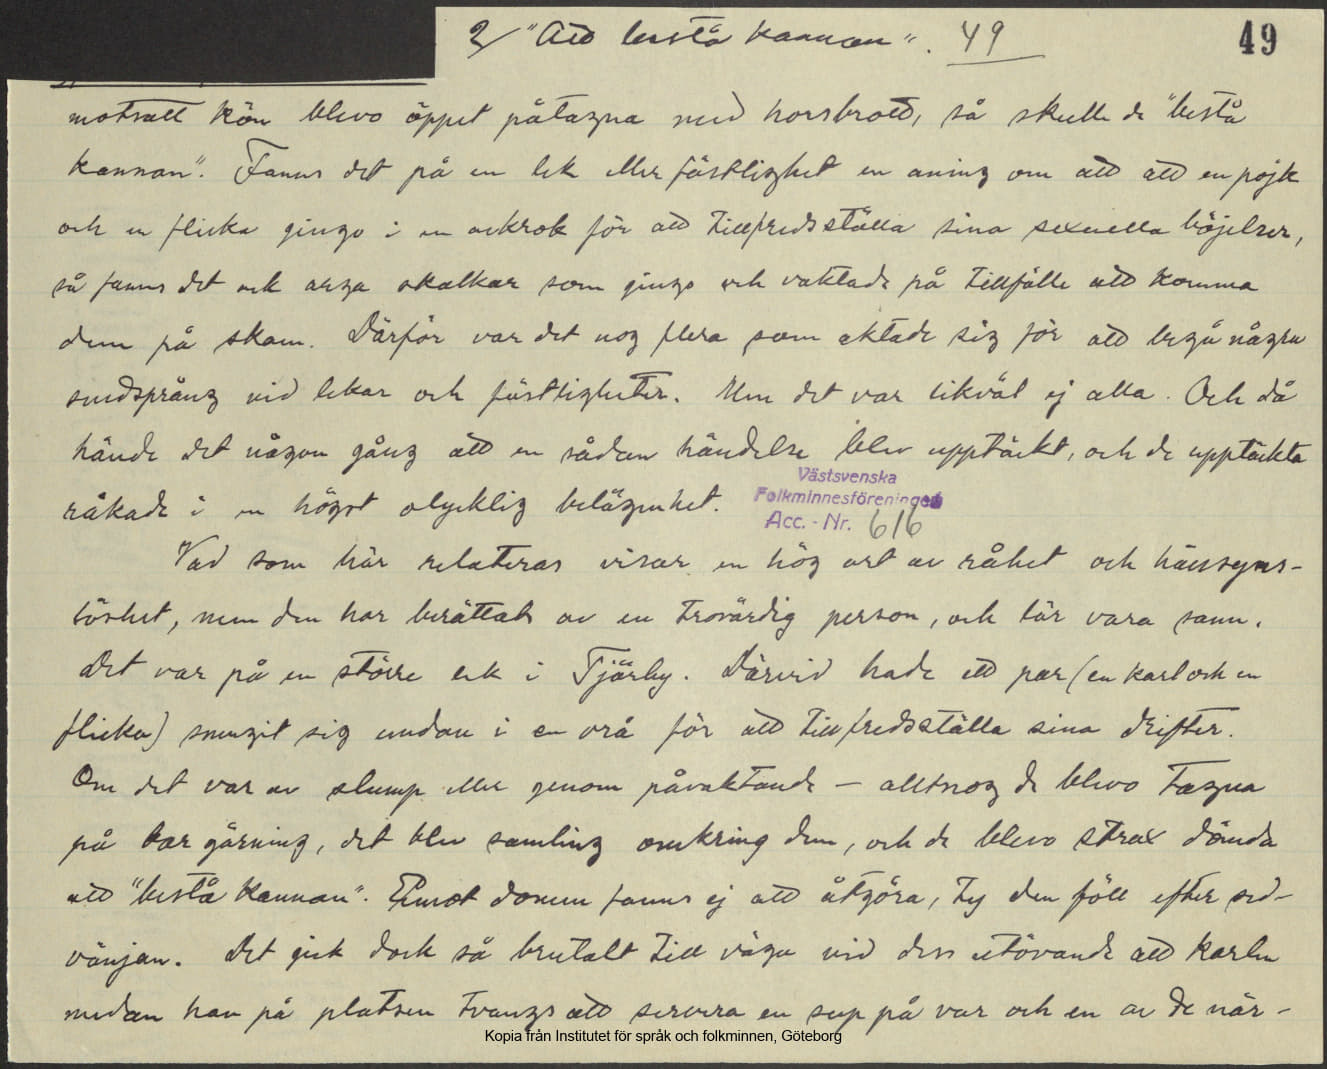 2/ "Att bestå kannan". 49
49
motsatt kön blevo öppet påtagna med horsbrott, så skulle de "bestå
kannan". Fanns det på en lek eller fästlighet en aning om att att en pojk
och en flicka gingo i en avkrok för att tillfredsställa sina sexuella böjelser,
så fanns det ock arga skalkar som gingo och vaktade på tillfälle att komma
dem på skam. Därför var det nog flera som aktade sig för att begå några
snedsprång vid lekar och fästligheter. Men det var likväl ej alla. Och då
hände det någon gång att en sådan händelse blev upptäckt, och de upptäckta
råkade i en högst olycklig belägenhet.
Västsvenska
Folkminnesföreningen
Acc. - Nr. 616
Vad som här relateras visar en hög art av råhet och hänsyns-
löshet, men den har berättats av en trovärdig person, och lär vara sann.
Det var på en större lek i Tjärby. Därvid hade ett par (en karl och en
flicka) smugit sig undan i en vrå för att tillfredsställa sina drifter.
Om det var av slump eller genom påvaktande – alltnog de blevo tagna
på bar gärning, det blev samling omkring dem, och de blevo strax dömda
att "bestå kannan". Emot domen fanns ej att åtgöra, ty den föll efter sed-
vänjan. Det gick dock så brutalt till väga vid dess utövande att karlen
medan han på platsen tvangs att servera en sup på var och en av de när-
Kopia från Institutet för språk och folkminnen, Göteborg